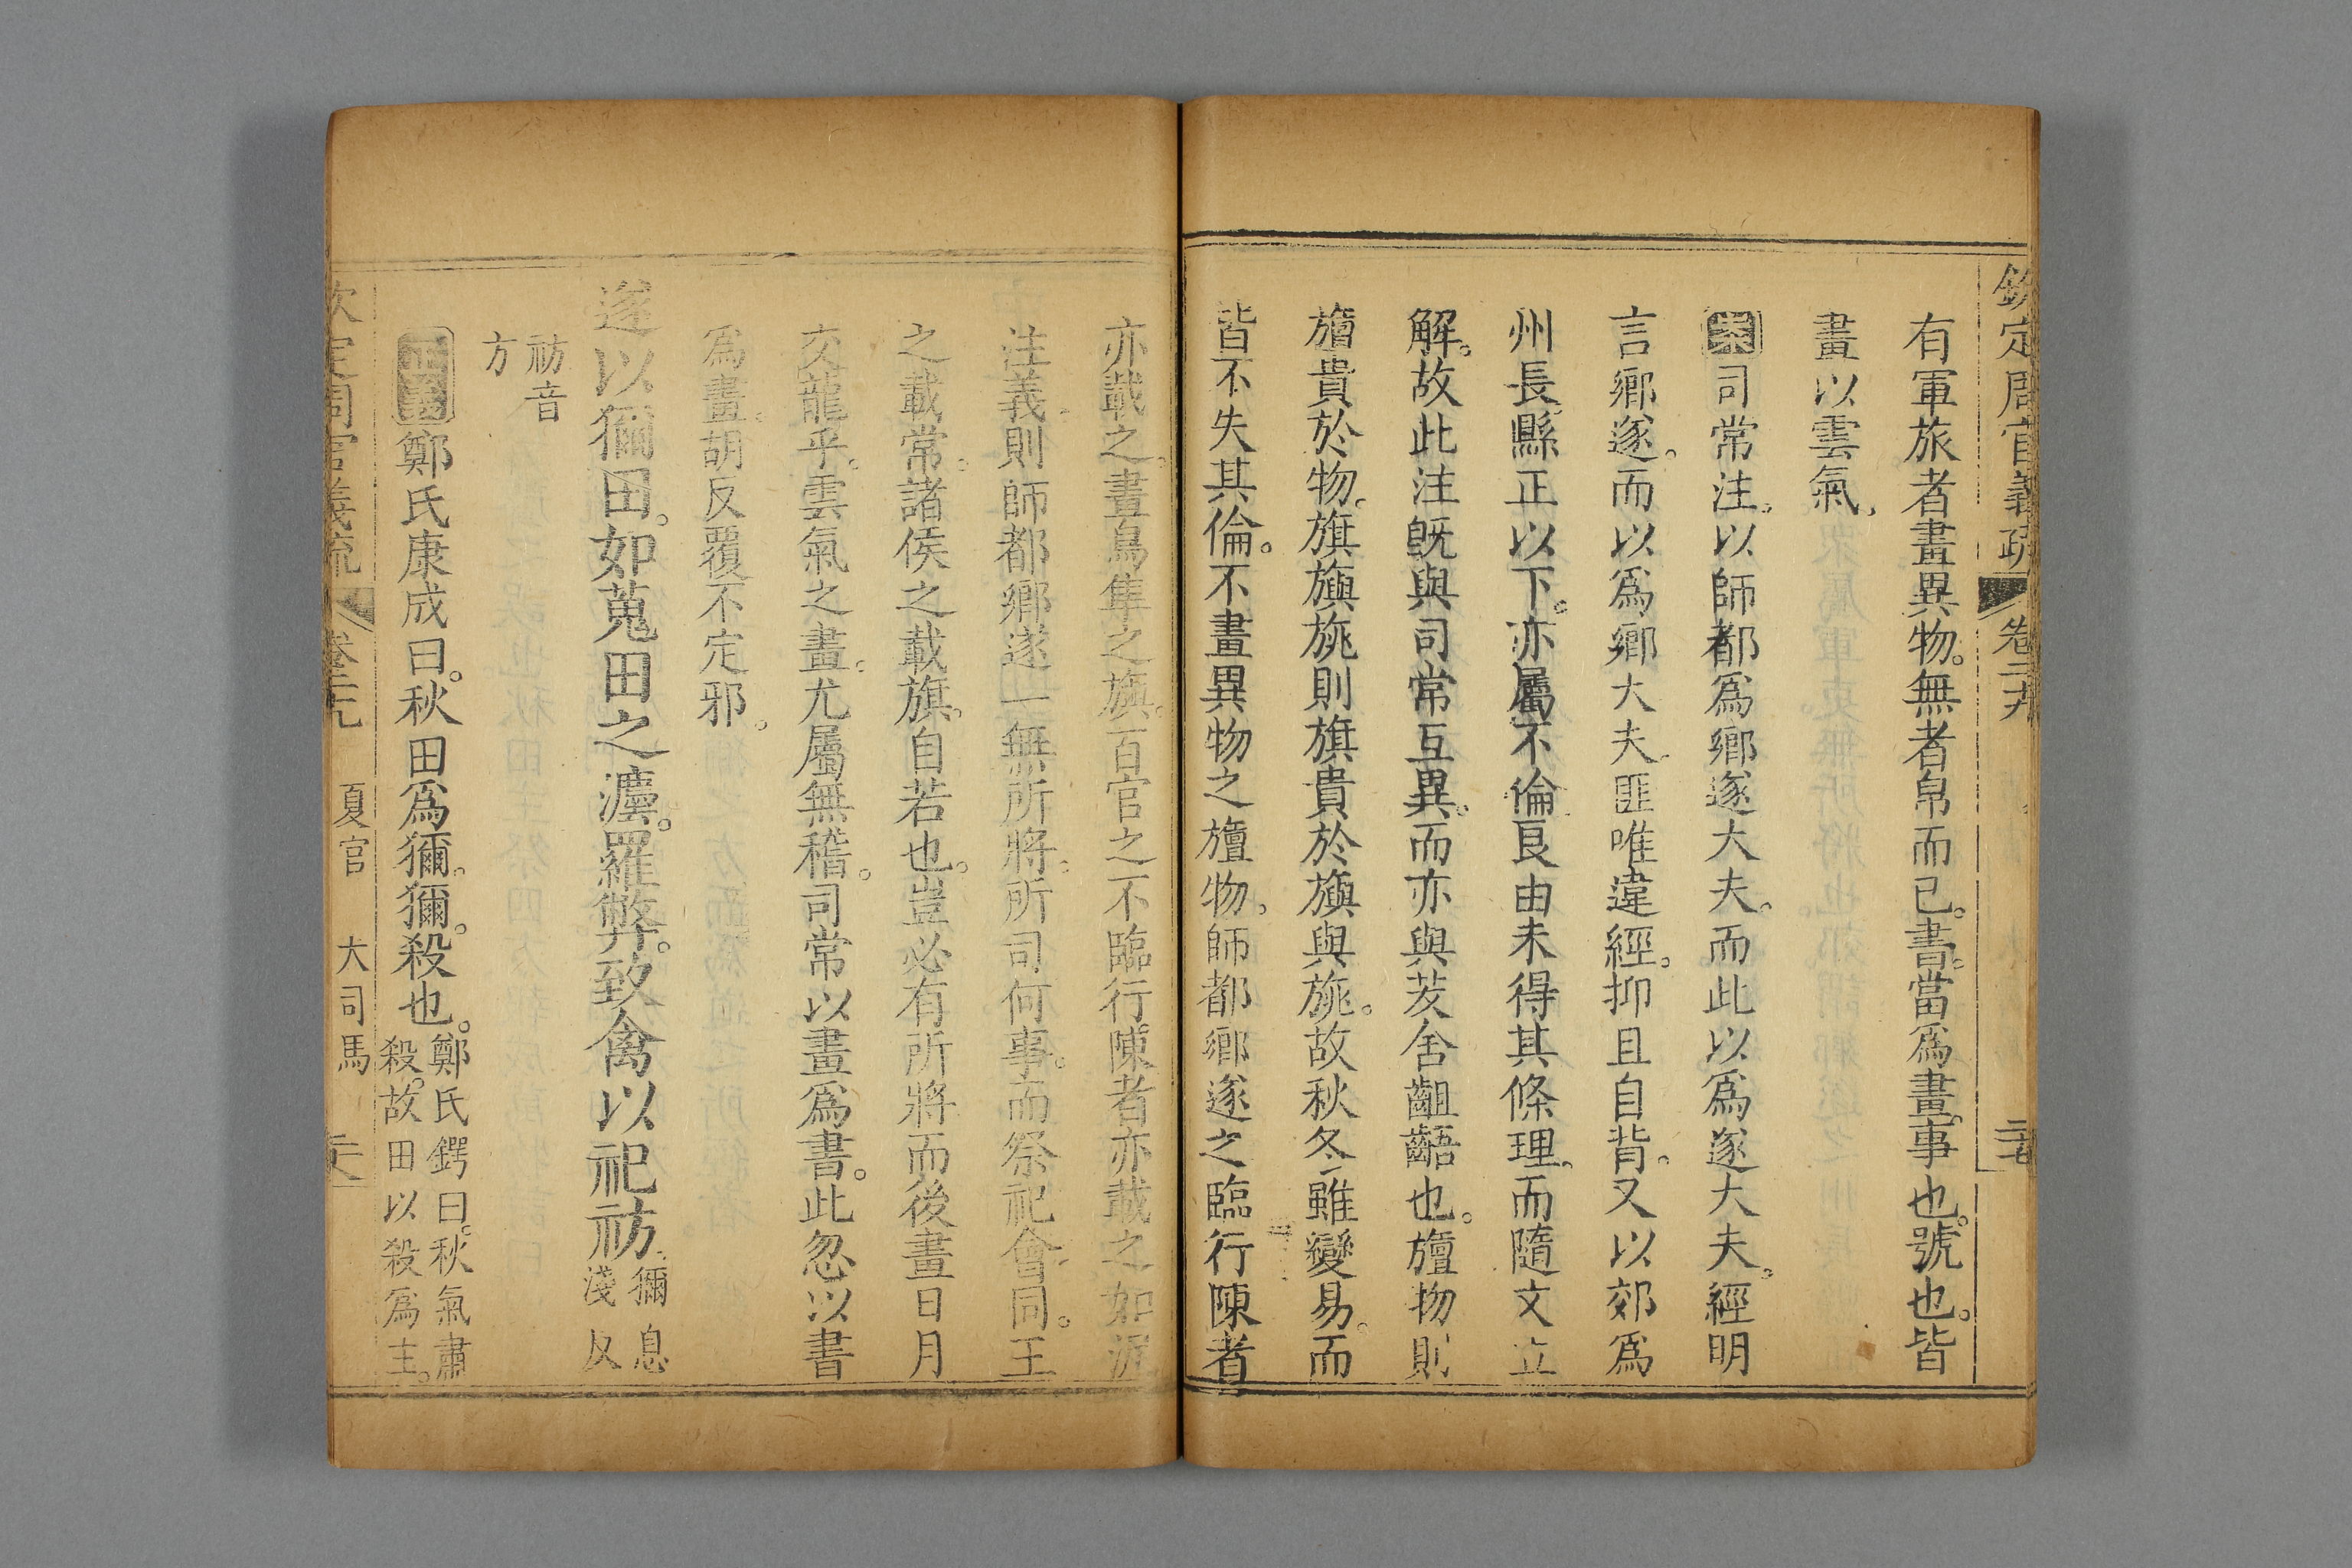 欽定周官義疏 卷二十九
有軍旅者畫異物。無者帛而已。書。當爲畫。事也。號也。皆
畫以雲氣。
案司常注。以師都爲鄉遂大夫。而此以爲遂大夫。經明
言鄉遂。而以爲鄉大夫。匪唯違經。抑且自背。又以郊爲
州長縣正以下。亦屬不倫。良由未得其條理。而隨文立
解。故此注旣與司常互異。而亦與茇舍齟齬也。旜物則
旜貴於物。旗旟旐則旗貴於旟與旐。故秋冬雖變易。而
皆不失其倫。不畫異物之旜物。師都鄉遂之臨行陳者
亦載之。畫鳥隼之旟。百官之不臨行陳者亦載之。如泥
注義。則師都鄉遂一無所將。所司何事。而祭祀會同。王
之載常。諸侯之載旂。自若也。豈必有所將而後畫日月
交龍乎。雲氣之畫。尤屬無稽。司常以畫爲書。此忽以書
爲畫。胡反覆不定邪。
遂以獮田。如蒐田之灋。羅弊。致禽以祀祊。獮息淺反
祊音方
正義鄭氏康成曰。秋田爲獮。獮。殺也。鄭氏鍔曰。秋氣肅殺。故田以殺爲主。
欽定周官義疏 卷二十九 夏官 大司馬